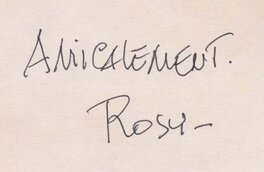 AMICALEMENT.
ROSY-